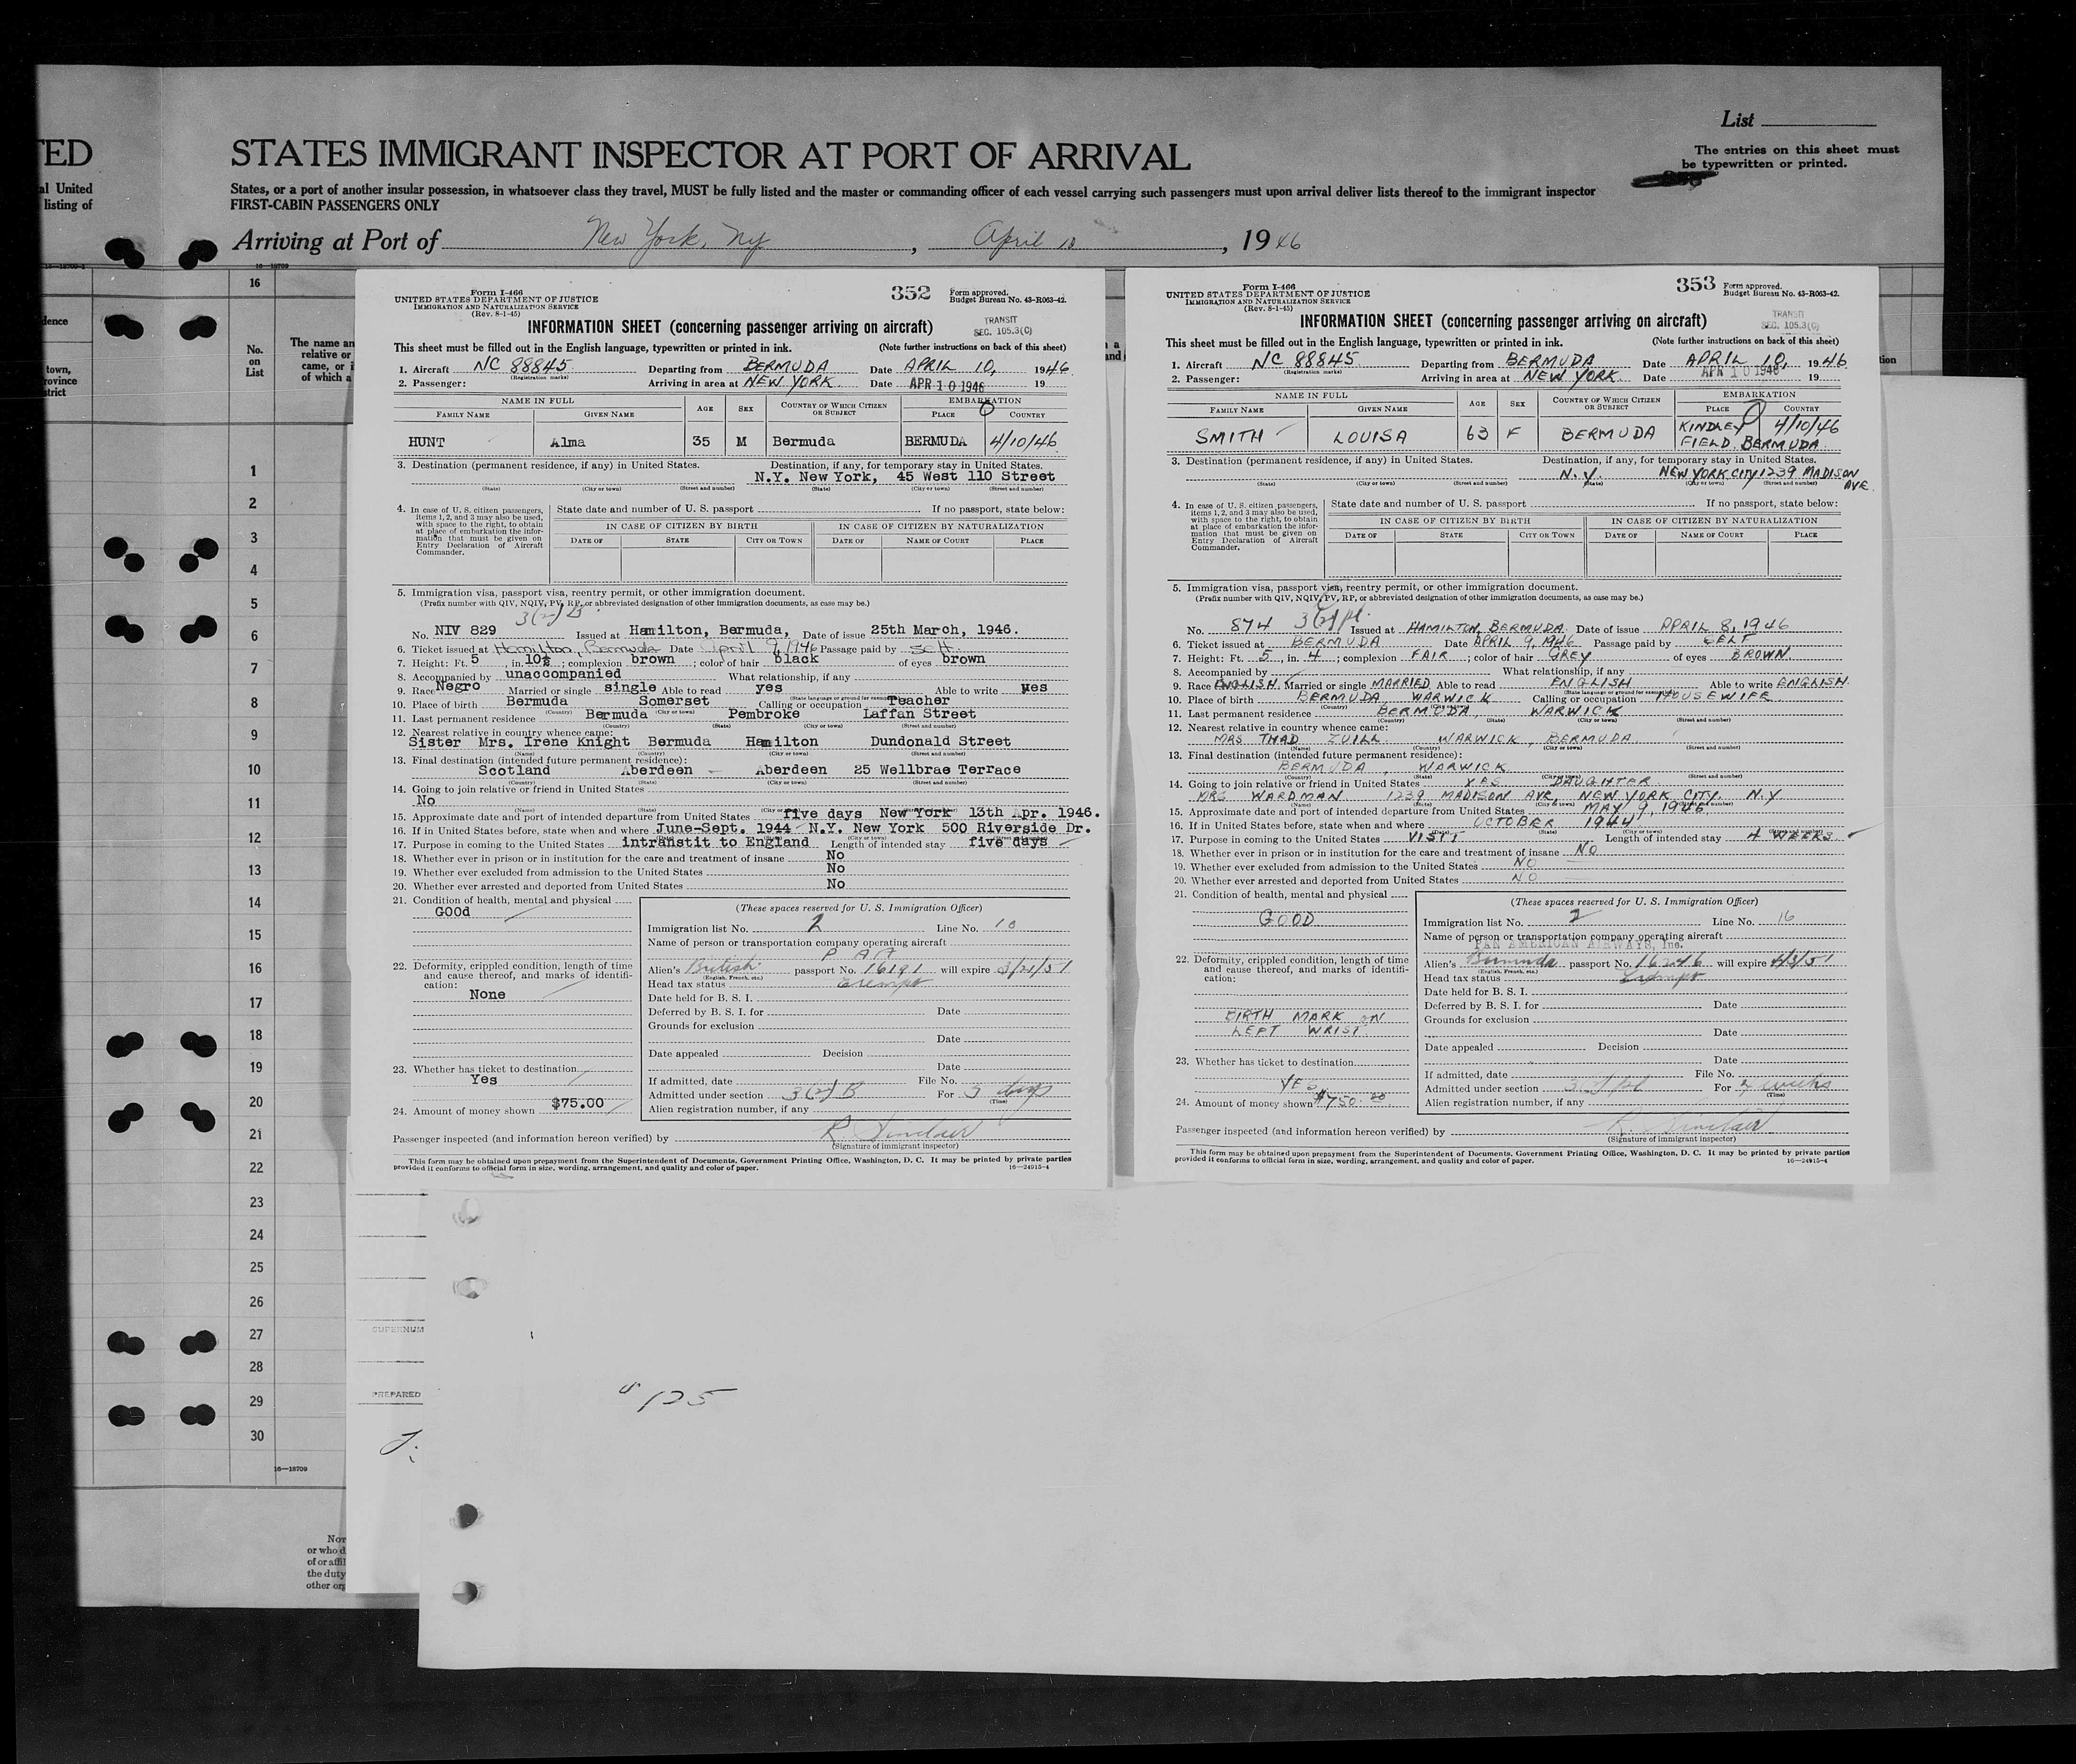 List
TED STATES IMMIGRANT INSPECTOR AT PORT OF ARRIVAL
The entries on this sheet must
be typewritten or printed.
al United States, or a port of another insular possession, in whatsoever class they travel, MUST be fully listed and the master or commanding officer of each vessel carrying such passengers must upon arrival deliver lists thereof to the immigrant inspector
listing of FIRST-CABIN PASSENGERS ONLY
Arriving at Port of New York, NY, April 10, 1946
16—18709
16
No.
on
List
The name an
relative or
came, or i
of which a
dence
town,
rovince
strict
1
2
3
4
5
6
7
8
9
10
11
12
13
14
15
16
17
18
19
20
21
22
23
24
25
26
27
28
29
30
16—18709
Not
or who d
of or affil
the duty
other org
Form I-466
UNITED STATES DEPARTMENT OF JUSTICE
IMMIGRATION AND NATURALIZATION SERVICE
(Rev. 8-1-45)
352
Form approved.
Budget Bureau No. 43-R063-42.
INFORMATION SHEET (concerning passenger arriving on aircraft)
TRANSIT
SEC. 105.3(C)
This sheet must be filled out in the English language, typewritten or printed in ink. (Note further instructions on back of this sheet)
1. Aircraft NC 88845 Departing from BERMUDA Date APRIL 10, 1946
(Registration marks)
2. Passenger: Arriving in area at NEW YORK Date APR 10 1946 19
NAME IN FULL AGE SEX COUNTRY OF WHICH CITIZEN OR SUBJECT EMBARKATION
FAMILY NAME GIVEN NAME PLACE COUNTRY
HUNT Alma 35 M Bermuda BERMUDA 4/10/46
3. Destination (permanent residence, if any) in United States. Destination, if any, for temporary stay in United States.
N.Y. New York, 45 West 110 Street
(State) (City or town) (Street and number) (State) (City or town) (Street and number)
4. In case of U. S. citizen passengers, items 1, 2, and 3 may also be used, with space to the right, to obtain at place of embarkation the information that must be given on Entry Declaration of Aircraft Commander.
State date and number of U. S. passport If no passport, state below:
IN CASE OF CITIZEN BY BIRTH IN CASE OF CITIZEN BY NATURALIZATION
DATE OF STATE CITY OR TOWN DATE OF NAME OF COURT PLACE
5. Immigration visa, passport visa, reentry permit, or other immigration document.
(Prefix number with QIV, NQIV, PV, RP, or abbreviated designation of other immigration documents, as case may be.)
3(2) B
No. NIV 829 Issued at Hamilton, Bermuda, Date of issue 25th March, 1946.
6. Ticket issued at Hamilton, Bermuda Date April 9, 1946 Passage paid by self.
7. Height: Ft. 5, in. 10½; complexion brown; color of hair black of eyes brown
8. Accompanied by unaccompanied What relationship, if any
9. Race Negro Married or single single Able to read yes Able to write yes
10. Place of birth Bermuda Somerset Calling or occupation Teacher
11. Last permanent residence Bermuda Pembroke Laffan Street
12. Nearest relative in country whence came:
Sister Mrs. Irene Knight Bermuda Hamilton Dundonald Street
(Name) (Country) (City or town) (Street and number)
13. Final destination (intended future permanent residence):
Scotland Aberdeen Aberdeen 25 Wellbrae Terrace
(Country) (State) (City or town) (Street and number)
14. Going to join relative or friend in United States
No
15. Approximate date and port of intended departure from United States five days New York 13th Apr. 1946.
16. If in United States before, state when and where June-Sept. 1944 N.Y. New York 500 Riverside Dr.
17. Purpose in coming to the United States intranstit to England Length of intended stay five days
18. Whether ever in prison or in institution for the care and treatment of insane No
19. Whether ever excluded from admission to the United States No
20. Whether ever arrested and deported from United States No
21. Condition of health, mental and physical
GOOd
22. Deformity, crippled condition, length of time and cause thereof, and marks of identification:
None
23. Whether has ticket to destination
Yes
24. Amount of money shown $75.00
(These spaces reserved for U. S. Immigration Officer)
Immigration list No. 2 Line No. 10
Name of person or transportation company operating aircraft
P A A
Alien's British passport No. 16191 will expire 3/21/51
(English, French, etc.)
Head tax status Exempt
Date held for B. S. I.
Deferred by B. S. I. for Date
Grounds for exclusion
Date
Date appealed Decision
Date
If admitted, date File No.
Admitted under section 3(2) B For 5 days
(Time)
Alien registration number, if any
Passenger inspected (and information hereon verified) by R. Sinclair
(Signature of immigrant inspector)
This form may be obtained upon prepayment from the Superintendent of Documents, Government Printing Office, Washington, D. C. It may be printed by private parties
provided it conforms to official form in size, wording, arrangement, and quality and color of paper. 16—24915-4
Form I-466
UNITED STATES DEPARTMENT OF JUSTICE
IMMIGRATION AND NATURALIZATION SERVICE
(Rev. 8-1-45)
353
Form approved.
Budget Bureau No. 43-R063-42.
INFORMATION SHEET (concerning passenger arriving on aircraft)
TRANSIT
SEC. 105.3(C)
This sheet must be filled out in the English language, typewritten or printed in ink. (Note further instructions on back of this sheet)
1. Aircraft NC 88845 Departing from BERMUDA Date APRIL 10, 1946
(Registration marks)
2. Passenger: Arriving in area at NEW YORK Date APR 10 1946 19
NAME IN FULL AGE SEX COUNTRY OF WHICH CITIZEN OR SUBJECT EMBARKATION
FAMILY NAME GIVEN NAME PLACE COUNTRY
SMITH LOUISA 63 F BERMUDA KINDLEY FIELD, BERMUDA 4/10/46
3. Destination (permanent residence, if any) in United States. Destination, if any, for temporary stay in United States.
N.Y. NEW YORK CITY 1239 MADISON AVE.
(State) (City or town) (Street and number) (State) (City or town) (Street and number)
4. In case of U. S. citizen passengers, items 1, 2, and 3 may also be used, with space to the right, to obtain at place of embarkation the information that must be given on Entry Declaration of Aircraft Commander.
State date and number of U. S. passport If no passport, state below:
IN CASE OF CITIZEN BY BIRTH IN CASE OF CITIZEN BY NATURALIZATION
DATE OF STATE CITY OR TOWN DATE OF NAME OF COURT PLACE
5. Immigration visa, passport visa, reentry permit, or other immigration document.
(Prefix number with QIV, NQIV, PV, RP, or abbreviated designation of other immigration documents, as case may be.)
No. 874 Issued at HAMILTON, BERMUDA Date of issue APRIL 8, 1946
6. Ticket issued at BERMUDA Date APRIL 9, 1946 Passage paid by SELF
7. Height: Ft. 5, in. 4; complexion FAIR; color of hair GREY of eyes BROWN.
8. Accompanied by What relationship, if any
9. Race ENGLISH. Married or single MARRIED Able to read ENGLISH Able to write ENGLISH
10. Place of birth BERMUDA, WARWICK Calling or occupation HOUSEWIFE
11. Last permanent residence BERMUDA, WARWICK
12. Nearest relative in country whence came:
MRS THAD ZUILL WARWICK, BERMUDA
(Name) (Country) (City or town) (Street and number)
13. Final destination (intended future permanent residence):
BERMUDA, WARWICK
14. Going to join relative or friend in United States YES DAUGHTER
MRS WARDMAN 1239 MADISON AVE, NEW YORK CITY N.Y
15. Approximate date and port of intended departure from United States MAY 9, 1946
16. If in United States before, state when and where OCTOBER 1944
17. Purpose in coming to the United States VISIT Length of intended stay 4 WEEKS
18. Whether ever in prison or in institution for the care and treatment of insane NO
19. Whether ever excluded from admission to the United States NO
20. Whether ever arrested and deported from United States NO
21. Condition of health, mental and physical
GOOD
22. Deformity, crippled condition, length of time and cause thereof, and marks of identification:
BIRTH MARK ON
LEFT WRIST
23. Whether has ticket to destination
YES
24. Amount of money shown $750.00
(These spaces reserved for U. S. Immigration Officer)
Immigration list No. 2 Line No. 16
Name of person or transportation company operating aircraft
PAN AMERICAN AIRWAYS, Inc.
Alien's Bermuda passport No. 16246 will expire 4/3/51
(English, French, etc.)
Head tax status Exempt
Date held for B. S. I.
Deferred by B. S. I. for Date
Grounds for exclusion
Date
Date appealed Decision
Date
If admitted, date File No.
Admitted under section For 4 weeks
(Time)
Alien registration number, if any
Passenger inspected (and information hereon verified) by R. Sinclair
(Signature of immigrant inspector)
This form may be obtained upon prepayment from the Superintendent of Documents, Government Printing Office, Washington, D. C. It may be printed by private parties
provided it conforms to official form in size, wording, arrangement, and quality and color of paper. 16—24915-4
SUPERNUM
PREPARED
125